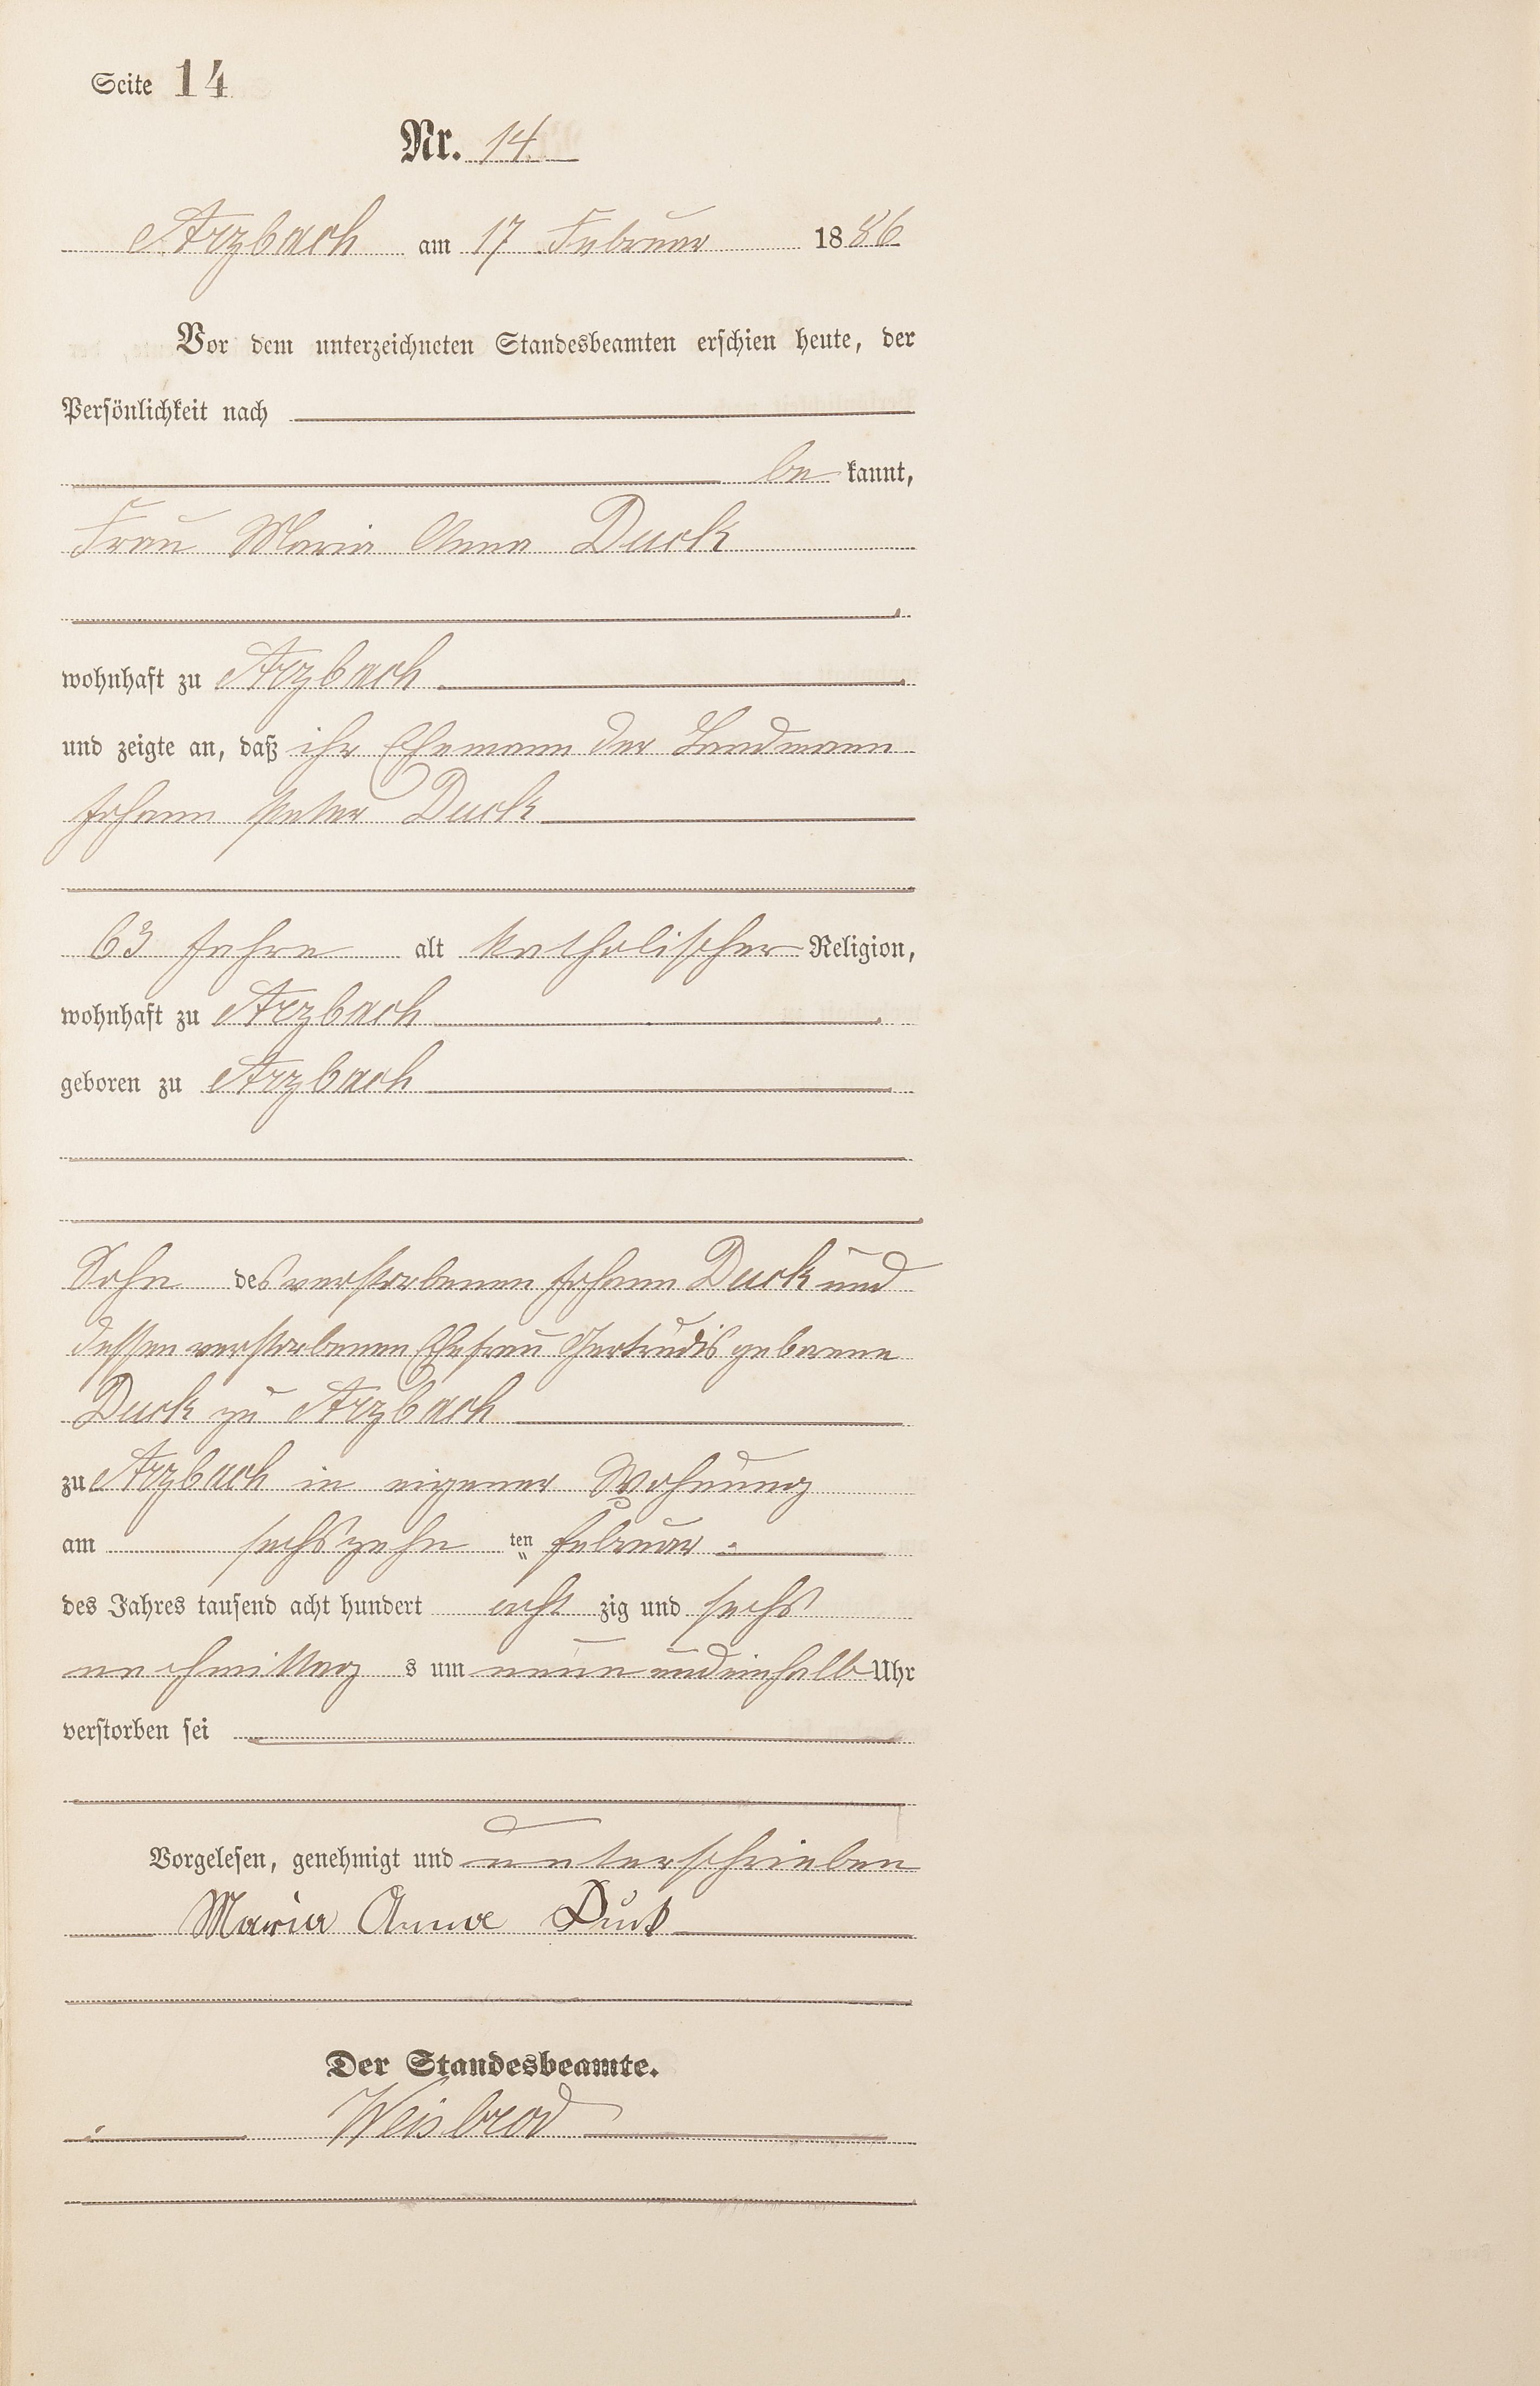 Seite 14
Nr. 14
Arzbach am 17 Februar 1886
Vor dem unterzeichneten Standesbeamten erschien heute, der
Persönlichkeit nach
be kannt,
Frau Maria Anna Duck
wohnhaft zu Arzbach
und zeigte an, daß ihr Ehemann der Landmann
Johann Peter Duck
63 Jahre alt katholischer Religion,
wohnhaft zu Arzbach
geboren zu Arzbach
Sohn des verstorbenen Johann Duck und
dessen verstorbenen Ehefrau Gertrudis geborene
Duck zu Arzbach
zu Arzbach in eigener Wohnung
am sechszehn ten Februar
des Jahres tausend acht hundert acht zig und sechs
nachmittag s um neun undeinhalb Uhr
verstorben sei
Vorgelesen, genehmigt und unterschrieben
Maria Anna Duck
Der Standesbeamte.
Weisbrod